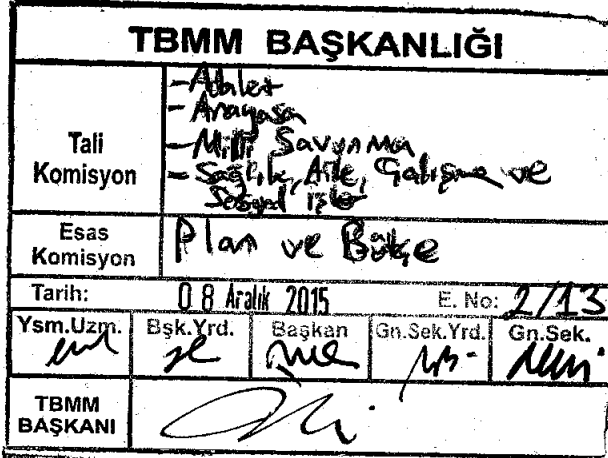 TBMM BAŞKANLIĞI
Tali Komisyon
- Adalet
- Anayasa
- Milli Savunma
- Sağlık, Aile, Çalışma ve
Sosyal işler
Esas Komisyon
Plan ve Bütçe
Tarih: 08 Aralık 2015 E. No: 2/13
Ysm.Uzm. Bşk.Yrd. Başkan Gn.Sek.Yrd. Gn.Sek.
TBMM
BAŞKANI